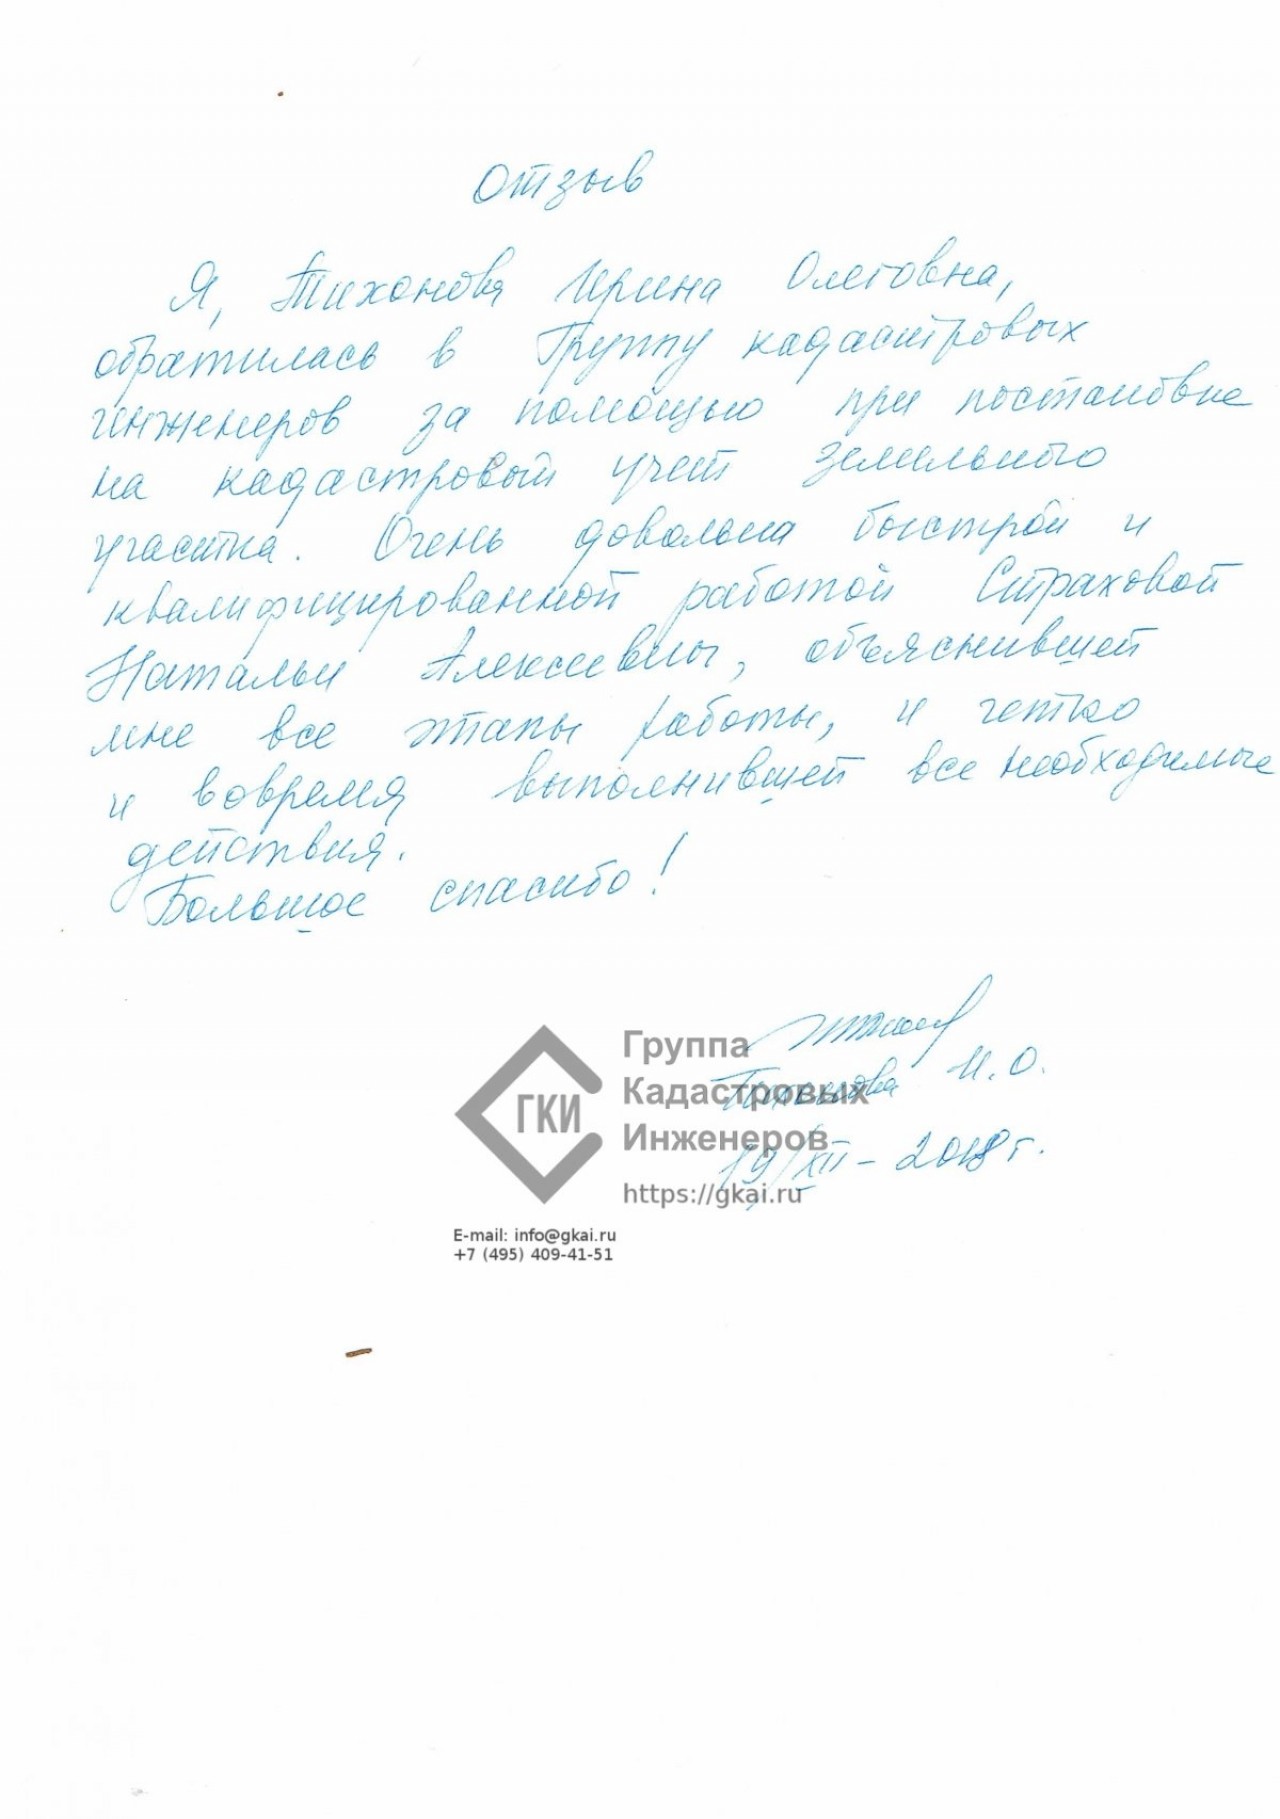 Отзыв
Я, Тихонова Ирина Олеговна,
обратилась в Группу кадастровых
инженеров за помощью при постановке
на кадастровый учет земельного
участка. Очень довольна быстрой и
квалифицированной работой Страховой
Натальи Алексеевны, объяснившей
мне все этапы работы, и четко
и вовремя выполнившей все необходимые
действия.
Большое спасибо!
Тихонова И.О.
19/XII - 2018 г.
ГКИ
Группа
Кадастровых
Инженеров
https://gkai.ru
E-mail: info@gkai.ru
+7 (495) 409-41-51